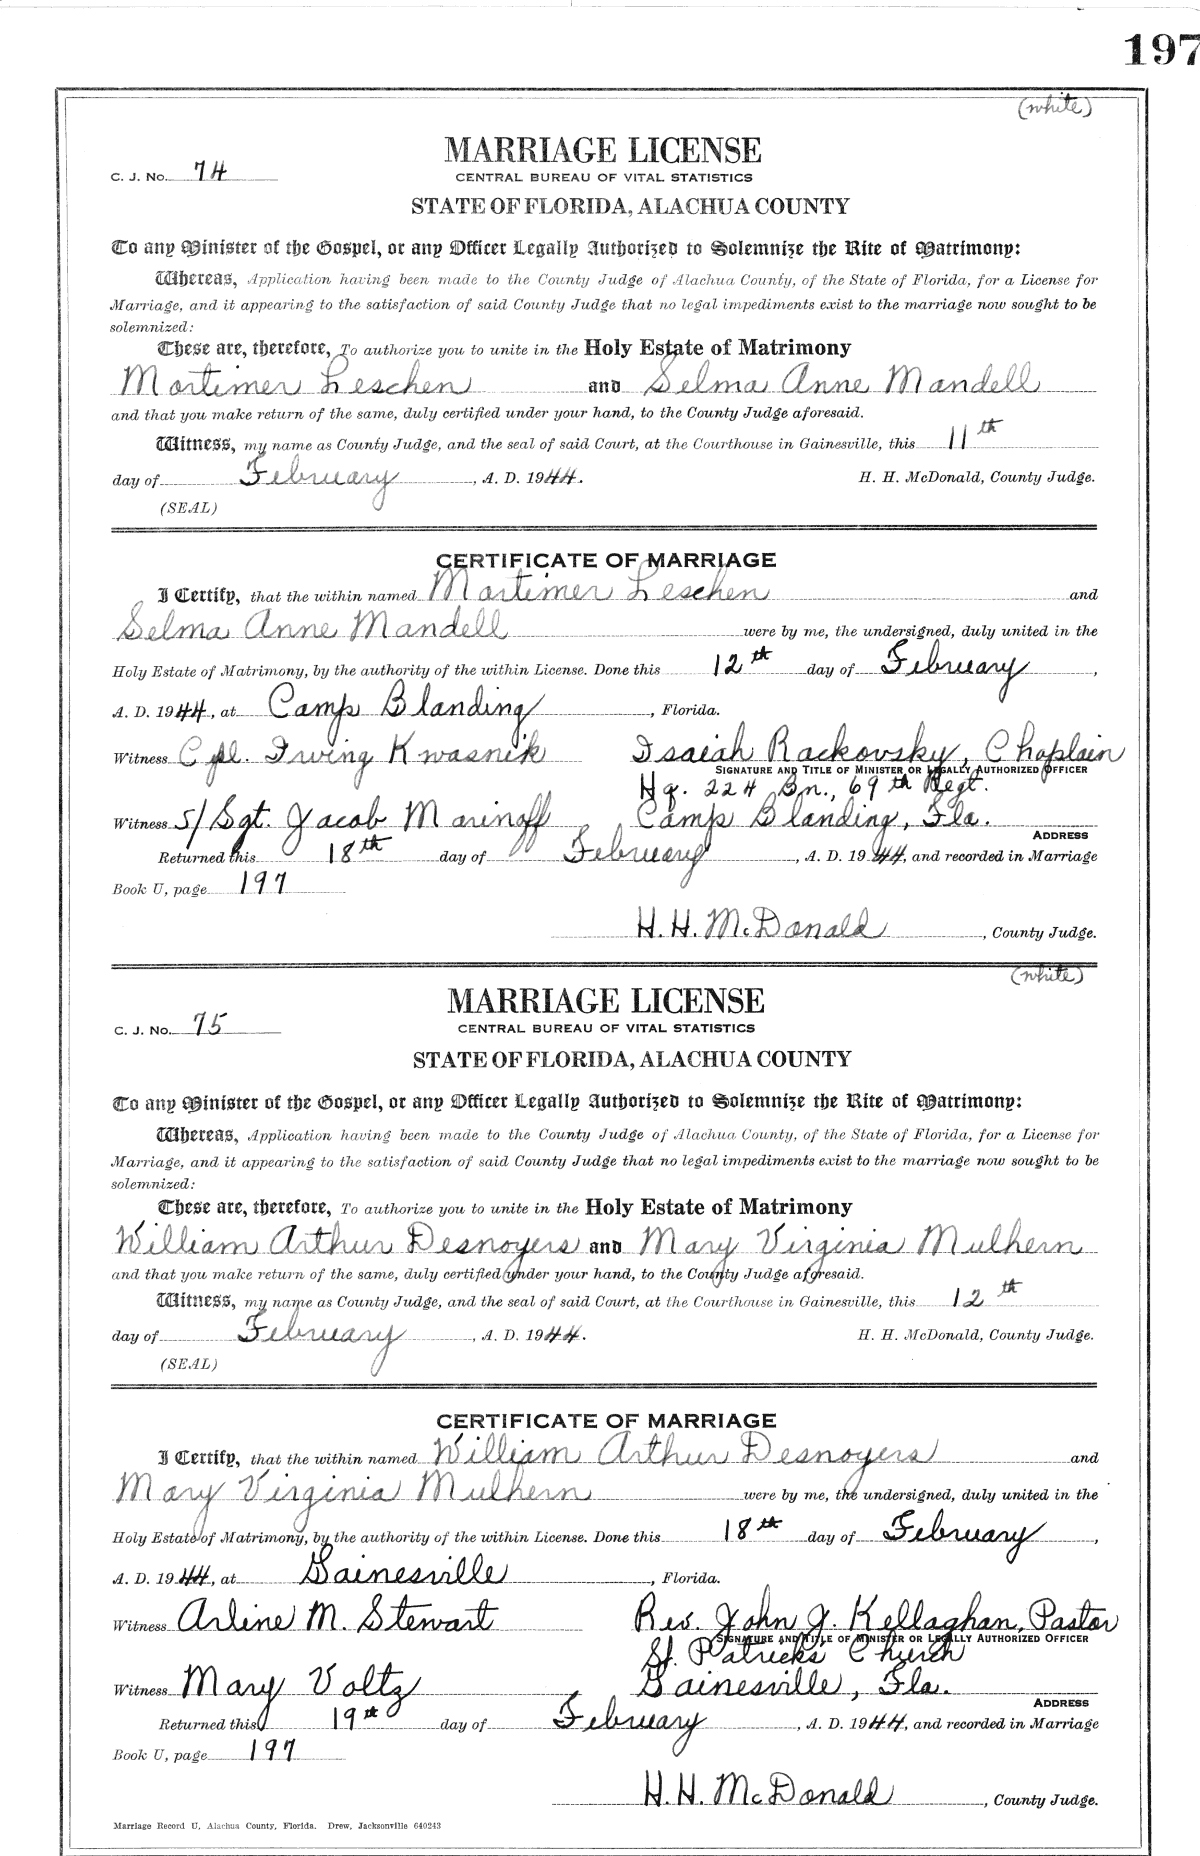 197
(white)
MARRIAGE LICENSE
C. J. No. 74
CENTRAL BUREAU OF VITAL STATISTICS
STATE OF FLORIDA, ALACHUA COUNTY
To any Minister of the Gospel, or any Officer Legally Authorized to Solemnize the Rite of Matrimony:
Whereas, Application having been made to the County Judge of Alachua County, of the State of Florida, for a License for
Marriage, and it appearing to the satisfaction of said County Judge that no legal impediments exist to the marriage now sought to be
solemnized:
These are, therefore, To authorize you to unite in the Holy Estate of Matrimony
Mortimer Leschen and Selma Anne Mandell
and that you make return of the same, duly certified under your hand, to the County Judge aforesaid.
Witness, my name as County Judge, and the seal of said Court, at the Courthouse in Gainesville, this 11th
day of February, A. D. 1944. H. H. McDonald, County Judge.
(SEAL)
CERTIFICATE OF MARRIAGE
I Certify, that the within named Mortimer Leschen and
Selma Anne Mandell were by me, the undersigned, duly united in the
Holy Estate of Matrimony, by the authority of the within License. Done this 12th day of February,
A. D. 1944, at Camp Blanding, Florida.
Witness Cpl. Irving Kwasnik Isaiah Rackovsky, Chaplain
SIGNATURE AND TITLE OF MINISTER OR LEGALLY AUTHORIZED OFFICER
Hq. 224 Bn., 69th Regt.
Witness S/Sgt. Jacob Marinoff Camp Blanding, Fla.
ADDRESS
Returned this 18th day of February, A. D. 1944, and recorded in Marriage
Book U, page 197
H. H. McDonald, County Judge.
(white)
MARRIAGE LICENSE
C. J. No. 75
CENTRAL BUREAU OF VITAL STATISTICS
STATE OF FLORIDA, ALACHUA COUNTY
To any Minister of the Gospel, or any Officer Legally Authorized to Solemnize the Rite of Matrimony:
Whereas, Application having been made to the County Judge of Alachua County, of the State of Florida, for a License for
Marriage, and it appearing to the satisfaction of said County Judge that no legal impediments exist to the marriage now sought to be
solemnized:
These are, therefore, To authorize you to unite in the Holy Estate of Matrimony
William Arthur Desnoyers and Mary Virginia Mulhern
and that you make return of the same, duly certified under your hand, to the County Judge aforesaid.
Witness, my name as County Judge, and the seal of said Court, at the Courthouse in Gainesville, this 12th
day of February, A. D. 1944. H. H. McDonald, County Judge.
(SEAL)
CERTIFICATE OF MARRIAGE
I Certify, that the within named William Arthur Desnoyers and
Mary Virginia Mulhern were by me, the undersigned, duly united in the
Holy Estate of Matrimony, by the authority of the within License. Done this 18th day of February,
A. D. 1944, at Gainesville, Florida.
Witness Arline M. Stewart Rev. John J. Kellaghan, Pastor
SIGNATURE AND TITLE OF MINISTER OR LEGALLY AUTHORIZED OFFICER
St. Patricks Church
Witness Mary Voltz Gainesville, Fla.
ADDRESS
Returned this 19th day of February, A. D. 1944, and recorded in Marriage
Book U, page 197
H. H. McDonald, County Judge.
Marriage Record U, Alachua County, Florida. Drew, Jacksonville 640243